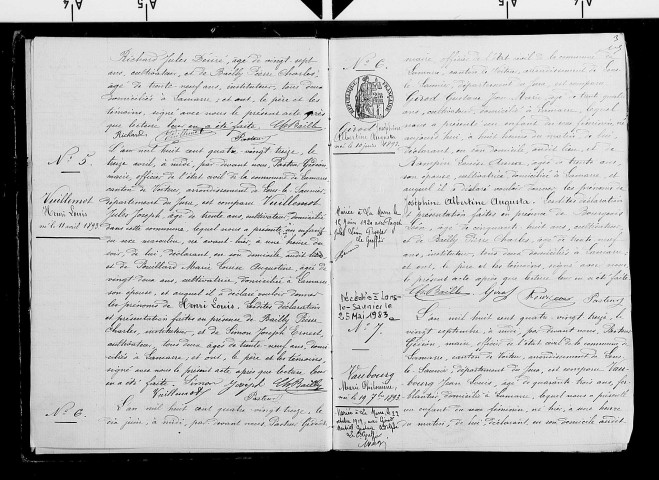 Richard Jules Désiré, âgé de vingt sept
ans, cultivateur, et de Bailly Pierre Charles,
âgé de trente neuf ans, instituteur, tous deux
domiciliés à Lamarre; et ont, le père et les
témoins, signé avec nous le présent acte après
que lecture leur en a été faite. Ch Bailly
Richard Pasteur
N° 5
Vuillemot
Henri Louis
né le 11 avril 1893
L'an mil huit cent quatre vingt treize, le
treize avril, à midi, par devant nous Pasteur Gérôm
maire, officier de l'état civil de la commune de Lamarre
canton de Voiteur, arrondissement de Lons le Saunier,
département du Jura, est comparu Vuillemot
Jules Joseph, âgé de trente ans, cultivateur domicilié
dans cette commune, lequel nous a présenté un enfant
du sexe masculin, né avant hier, à une heure du
soir, de lui, déclarant, en son domicile, audit lieu
et de Bouillard Marie Louise Augustine, âgée de
vingt deux ans, cultivatrice, domiciliée à Lamarre
son épouse, et auquel il a déclaré vouloir donner
les prénoms de Henri Louis. Lesdites déclaration
et présentation faites en présence de Bailly Pierre
Charles, instituteur, et de Simon Joseph Ernest,
cultivateur, tous deux âgés de trente neuf ans, domi-
ciliés à Lamarre, et ont, le père et les témoins
signé avec nous le présent acte, après que lecture leur
en a été faite. Simon Joseph Ch Bailly
Vuillemot Pasteur
N° 6
L'an mil huit cent quatre vingt treize, le
dix juin, à midi, par devant nous, Pasteur Gérôm,
3
N° 6
RÉPUBLIQUE FRANÇAISE
Girod Joséphine
Albertine Augusta
née le 10 juin 1893
maire, officier de l'état civil de la commune de
Lamarre, canton de Voiteur, arrondissement de Lons
le Saunier, département du Jura, est comparu
Girod
ans, cultivateur, domicilié à Lamarre, lequel
nous a présenté un enfant du sexe féminin, né
aujourd'hui, à huit heures du matin, de lui,
déclarant, en son domicile, audit lieu, et de
âgée de trente ans
son épouse, cultivatrice, domiciliée à Lamarre, et
auquel il a déclaré vouloir donner les prénoms de
Joséphine Albertine Augusta. Lesdites déclaration
et présentation faites en présence de Bourgeois
Léon, âgé de cinquante huit ans, cultivateur,
et de Bailly Pierre Charles, âgé de trente neuf
ans, instituteur, tous deux domiciliés à Lamarre,
et ont, le père et les témoins, signé avec nous
le présent acte après que lecture leur en a été faite.
Ch Bailly Girod Bourgeois Pasteur
Mariée à
juin 1920
Le Greffier
Décédée à Lons-
le-Saunier le
25 Mai 1983
N° 7
Vaubourg
Marie Philomène,
née le 19 7bre 1893
L'an mil huit cent quatre vingt treize, le
vingt septembre, à midi, par devant nous, Pasteur
Gérôm, maire, officier de l'état civil de la commune de
Lamarre, canton de Voiteur, arrondissement de Lons
le Saunier, département du Jura, est comparu Vau-
bourg Jean Louis, âgé de quarante trois ans, fer-
blantier, domicilié à Lamarre, lequel nous a présenté
un enfant du sexe féminin, né hier, à une heure
du matin, de lui, déclarant, en son domicile audit